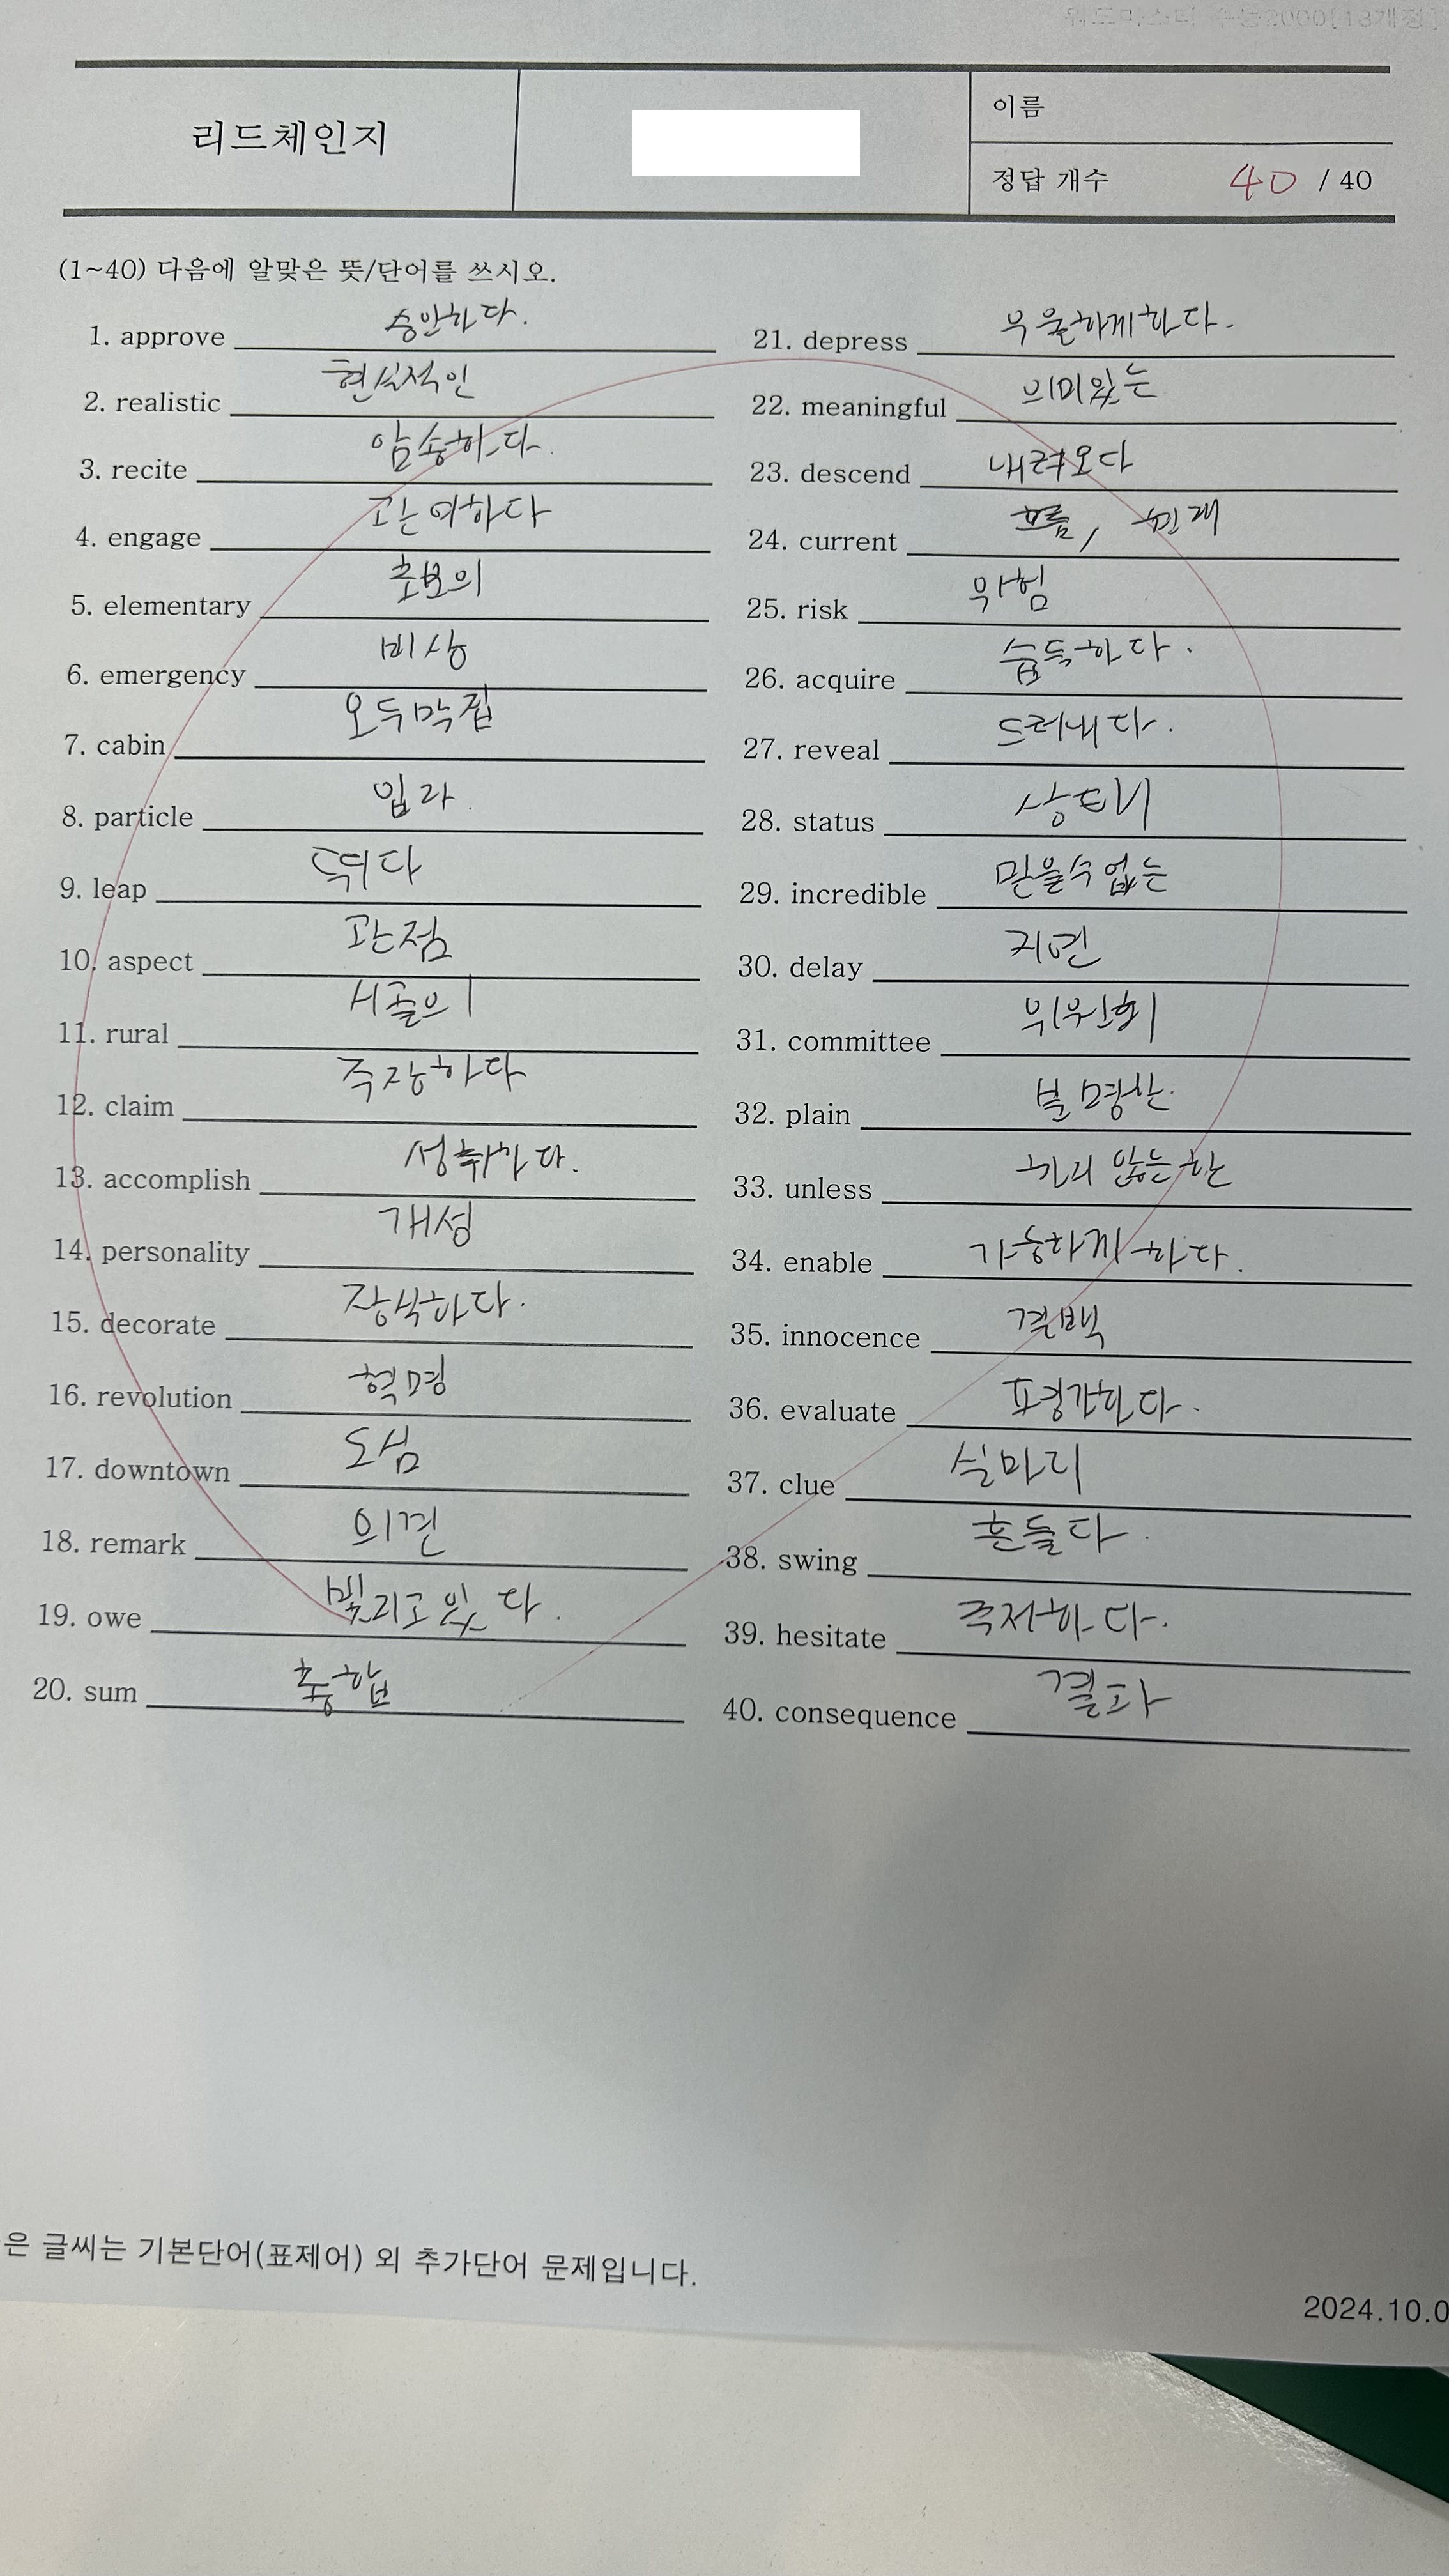 워드마스터 수능2000[13개정]
리드체인지
이름
정답 개수 40 / 40
(1~40) 다음에 알맞은 뜻/단어를 쓰시오.
1. approve 승인하다.
2. realistic 현실적인
3. recite 암송하다.
4. engage 관여하다
5. elementary 초보의
6. emergency 비상
7. cabin 오두막집
8. particle 입자.
9. leap 뛰다
10. aspect 관점
11. rural 시골의
12. claim 주장하다
13. accomplish 성취하다.
14. personality 개성
15. decorate 장식하다.
16. revolution 혁명
17. downtown 도심
18. remark 의견
19. owe 빚지고 있다.
20. sum 총합
21. depress 우울하게하다.
22. meaningful 의미있는
23. descend 내려오다
24. current 흐름, 현재
25. risk 위험
26. acquire 습득하다.
27. reveal 드러내다.
28. status 상태
29. incredible 믿을수없는
30. delay 지연
31. committee 위원회
32. plain 분명한
33. unless 하지 않는한
34. enable 가능하게 하다.
35. innocence 결백
36. evaluate 평가하다.
37. clue 실마리
38. swing 흔들다.
39. hesitate 주저하다.
40. consequence 결과
은 글씨는 기본단어(표제어) 외 추가단어 문제입니다.
2024.10.0